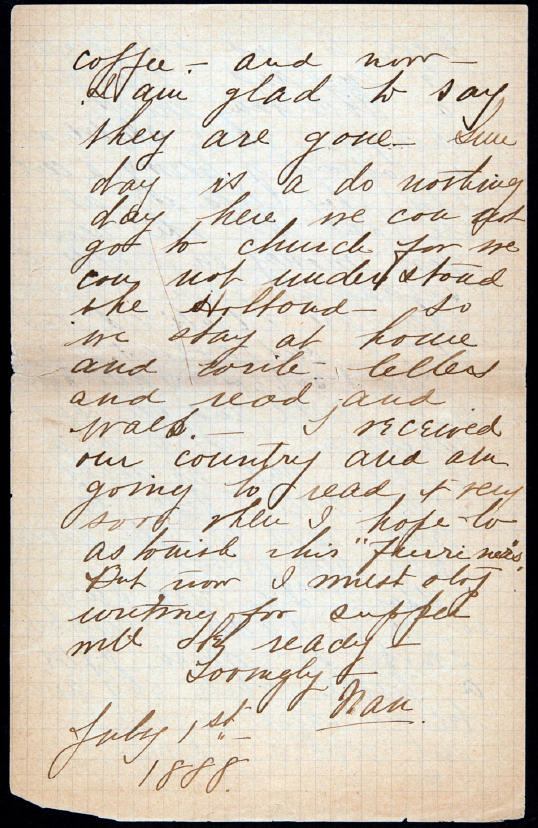 coffee - and now -
I am glad to say
they are gone - Sun
day is a do nothing
day here we can not
go to church for we
can not understand
the Holland - so
we stay at home
and write letters
and read and
walk. - I received
our country and am
going to read it very
soon when I hope to
astonish this "furriners".
But now I must stop
writing for supper
will be ready -
Lovingly
Nan.
July 1st -
1888.